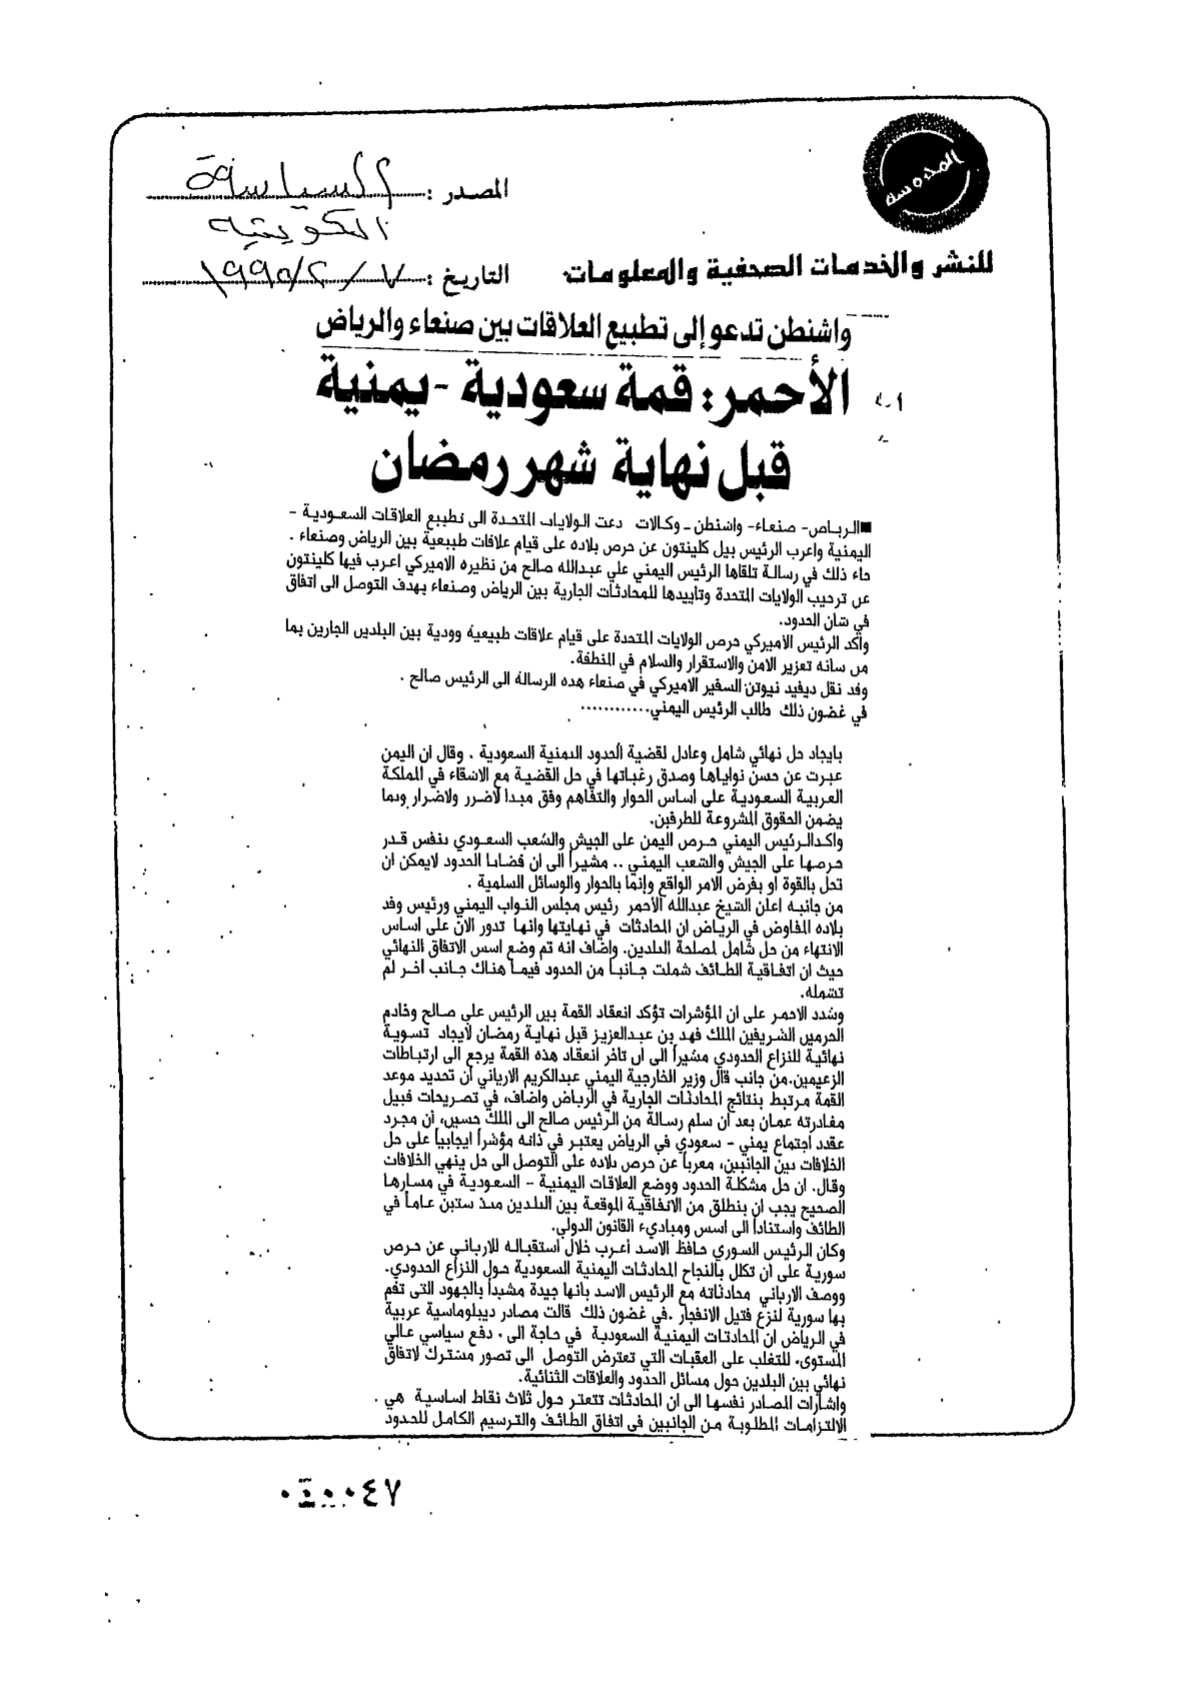 المحروسة
المصدر : السياسة
الكويتية
للنشر والخدمات الصحفية والمعلومات
التاريخ : ٧ / ٢ / ١٩٩٥
واشنطن تدعو إلى تطبيع العلاقات بين صنعاء والرياض
الأحمر: قمة سعودية - يمنية
قبل نهاية شهر رمضان
■ الرياض- صنعاء- واشنطن - وكالات دعت الولايات المتحدة الى تطبيع العلاقات السعودية -
اليمنية واعرب الرئيس بيل كلينتون عن حرص بلاده على قيام علاقات طبيعية بين الرياض وصنعاء .
جاء ذلك في رسالة تلقاها الرئيس اليمني علي عبدالله صالح من نظيره الاميركي اعرب فيها كلينتون
عن ترحيب الولايات المتحدة وتاييدها للمحادثات الجارية بين الرياض وصنعاء بهدف التوصل الى اتفاق
في شان الحدود.
واكد الرئيس الاميركي حرص الولايات المتحدة على قيام علاقات طبيعية وودية بين البلدين الجارين بما
من شانه تعزيز الامن والاستقرار والسلام في المنطقة.
وقد نقل ديفيد نيوتن السفير الاميركي في صنعاء هذه الرسالة الى الرئيس صالح .
في غضون ذلك طالب الرئيس اليمني............
بايجاد حل نهائي شامل وعادل لقضية الحدود اليمنية السعودية . وقال ان اليمن
عبرت عن حسن نواياها وصدق رغباتها في حل القضية مع الاشقاء في المملكة
العربية السعودية على اساس الحوار والتفاهم وفق مبدا لاضرر ولاضرار وبما
يضمن الحقوق المشروعة للطرفين.
واكدالرئيس اليمني حرص اليمن على الجيش والشعب السعودي بنفس قدر
حرصها على الجيش والشعب اليمني .. مشيراً الى ان قضايا الحدود لايمكن ان
تحل بالقوة او بفرض الامر الواقع وإنما بالحوار والوسائل السلمية .
من جانبه اعلن الشيخ عبدالله الأحمر رئيس مجلس النواب اليمني ورئيس وفد
بلاده المفاوض في الرياض ان المحادثات في نهايتها وانها تدور الآن على اساس
الانتهاء من حل شامل لمصلحة البلدين. واضاف انه تم وضع اسس الاتفاق النهائي
حيث ان اتفاقية الطائف شملت جانبا من الحدود فيما هناك جانب اخر لم
تشمله.
وشدد الاحمر على ان المؤشرات تؤكد انعقاد القمة بين الرئيس علي صالح وخادم
الحرمين الشريفين الملك فهد بن عبدالعزيز قبل نهاية رمضان لايجاد تسوية
نهائية للنزاع الحدودي مشيراً الى ان تاخر انعقاد هذه القمة يرجع الى ارتباطات
الزعيمين.من جانب قال وزير الخارجية اليمني عبدالكريم الارياني ان تحديد موعد
القمة مرتبط بنتائج المحادثات الجارية في الرياض واضاف، في تصريحات قبيل
مغادرته عمان بعد ان سلم رسالة من الرئيس صالح الى الملك حسين، أن مجرد
عقدد اجتماع يمني - سعودي في الرياض يعتبر في ذاته مؤشراً ايجابياً على حل
الخلافات بين الجانبين، معرباً عن حرص بلاده على التوصل الى حل ينهي الخلافات
وقال. ان حل مشكلة الحدود ووضع العلاقات اليمنية - السعودية في مسارها
الصحيح يجب ان ينطلق من الاتفاقية الموقعة بين البلدين منذ ستين عاماً في
الطائف واستناداً الى اسس ومباديء القانون الدولي.
وكان الرئيس السوري حافظ الاسد اعرب خلال استقباله للارياني عن حرص
سورية على ان تكلل بالنجاح المحادثات اليمنية السعودية حول النزاع الحدودي.
ووصف الارياني محادثاته مع الرئيس الاسد بانها جيدة مشيداً بالجهود التي تقم
بها سورية لنزع فتيل الانفجار .في غضون ذلك قالت مصادر ديبلوماسية عربية
في الرياض ان المحادثات اليمنية السعودية في حاجة الى، دفع سياسي عالي
المستوى، للتغلب على العقبات التي تعترض التوصل الى تصور مشترك لاتفاق
نهائي بين البلدين حول مسائل الحدود والعلاقات الثنائية.
واشارات المصادر نفسها الى ان المحادثات تتعتر حول ثلاث نقاط اساسية هي .
الالتزامات المطلوبة من الجانبين في اتفاق الطائف والترسيم الكامل للحدود